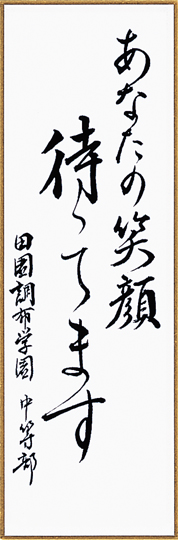 あなたの笑顔
待ってます
田園調布学園 中等部